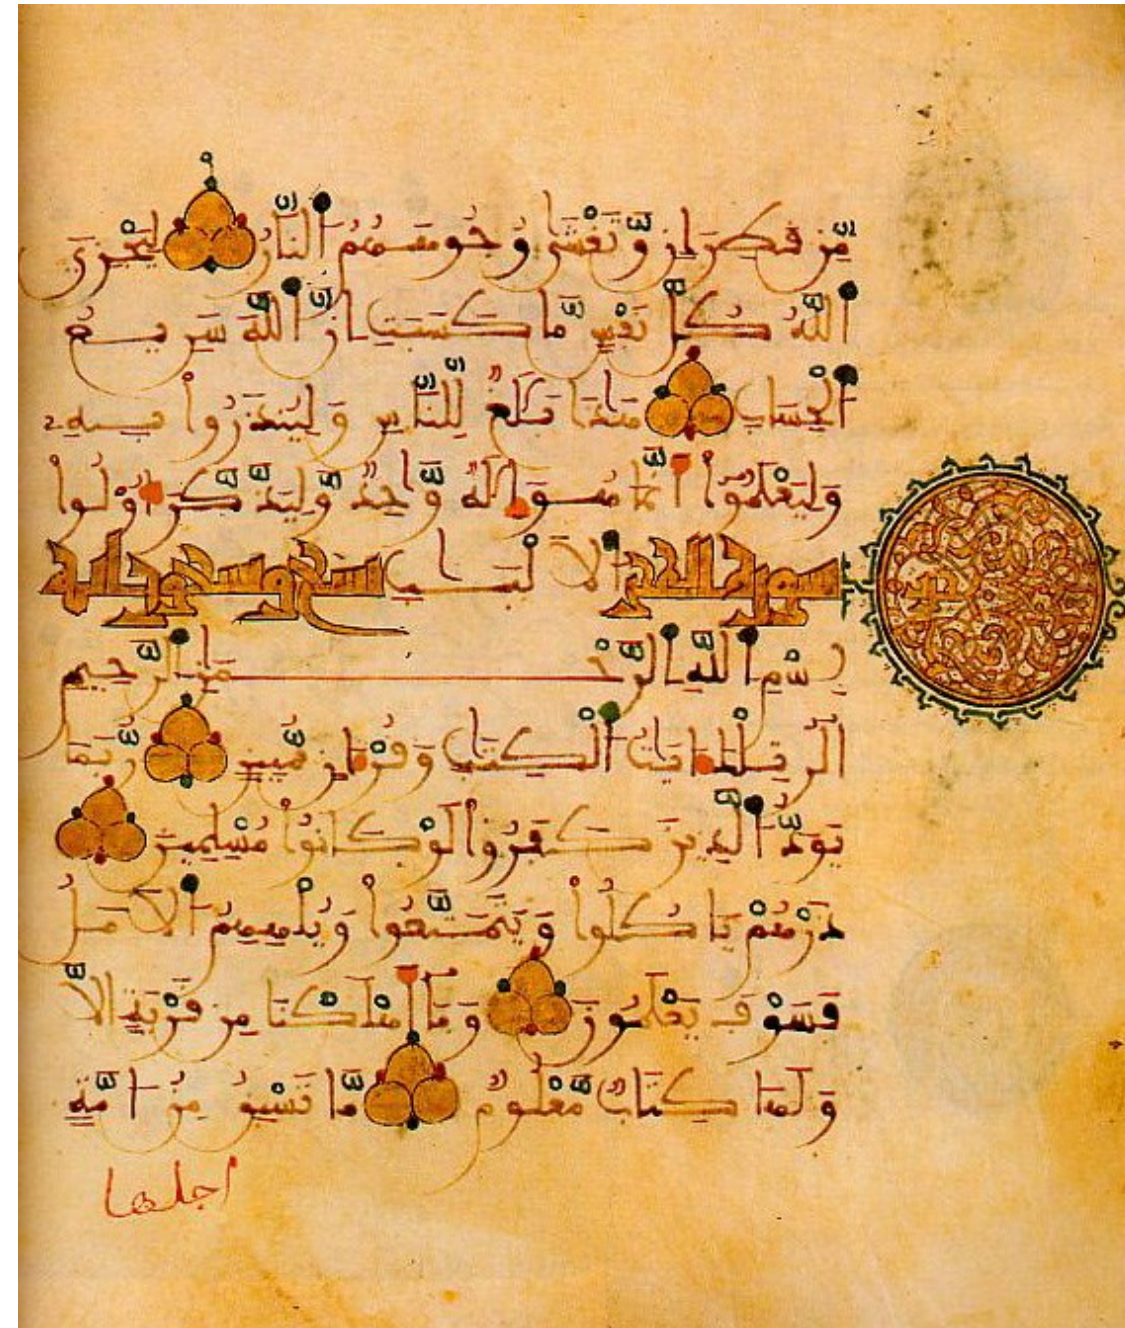 مِّن قَطِرَانٍ وَّتَغْشَىٰ وُجُوهَهُمُ النَّارُ لِيَجْزِيَ
اللَّهُ كُلَّ نَفْسٍ مَّا كَسَبَتِ انَّ اللَّهَ سَرِيعُ
الْحِسَابِ هَٰذَا بَلَٰغٌ لِّلنَّاسِ وَلِيُنذَرُواْ بِهِۦ
وَلِيَعْلَمُواْ أَنَّمَا هُوَ إِلَٰهٌ وَّاحِدٌ وَّلِيَذَّكَّرَ أُوْلُواْ
سورة الحجر الاَلْبَٰبِ تسع وتسعون اية
بِسْمِ اللَّهِ الرَّحْمَٰنِ الرَّحِيمِ
الَرَ تِلْكَ ءَايَٰتُ الْكِتَٰبِ وَقُرْءَانٍ مُّبِينٍ رُّبَمَا
يَوَدُّ الَّذِينَ كَفَرُواْ لَوْ كَانُواْ مُسْلِمِينَ
ذَرْهُمْ يَاكُلُواْ وَيَتَمَتَّعُواْ وَيُلْهِهِمُ الاَمَلُ
فَسَوْفَ يَعْلَمُونَ وَمَا أَهْلَكْنَا مِن قَرْيَةٍ الاَّ
وَلَهَا كِتَابٌ مَّعْلُومٌ مَّا تَسْبِقُ مِنُ امَّةٍ
اجلها